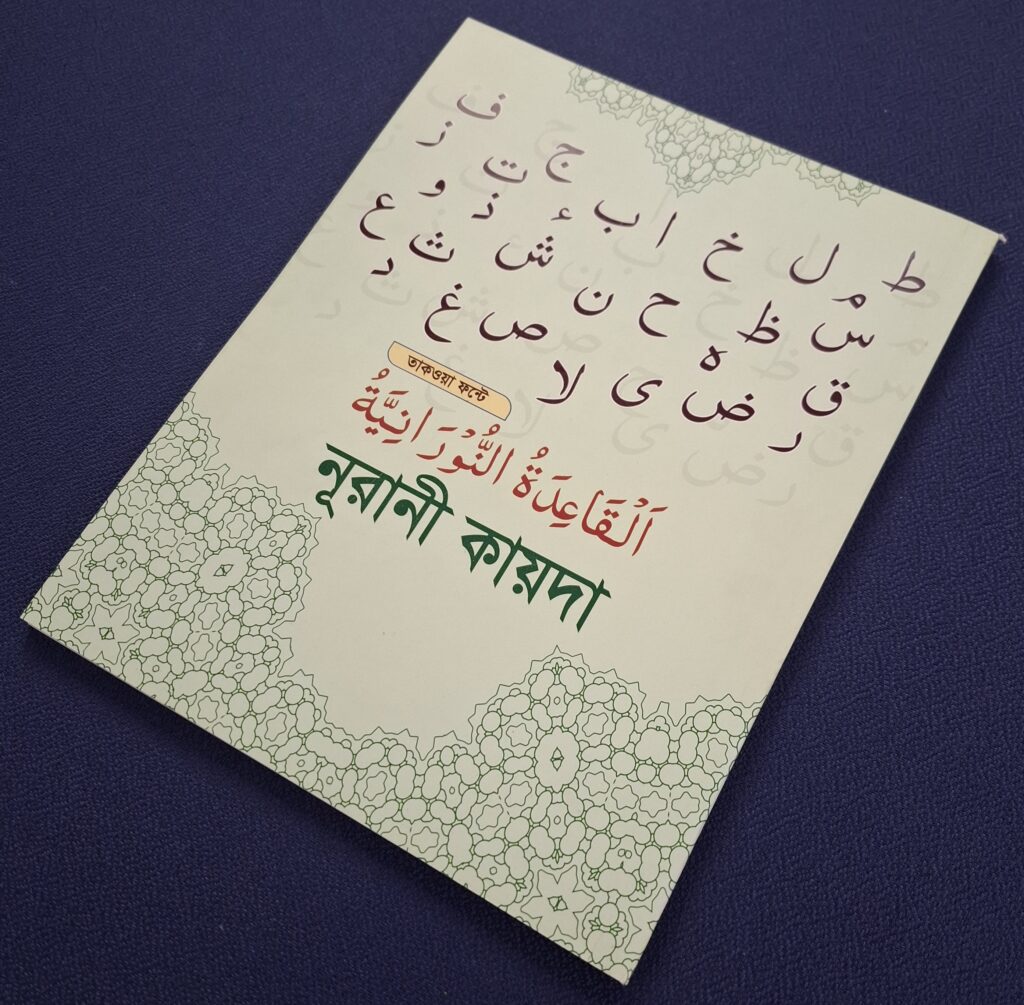 ط ل ج ف
م خ ا ب ت ز
س ظ ح ء ش ذ و
ق ه ن ث ع
ر ض ى لا ص غ د
তাকওয়া ফন্টে
اَلْقَاعِدَةُ النُّوْرَانِيَّةُ
নূরানী কায়দা